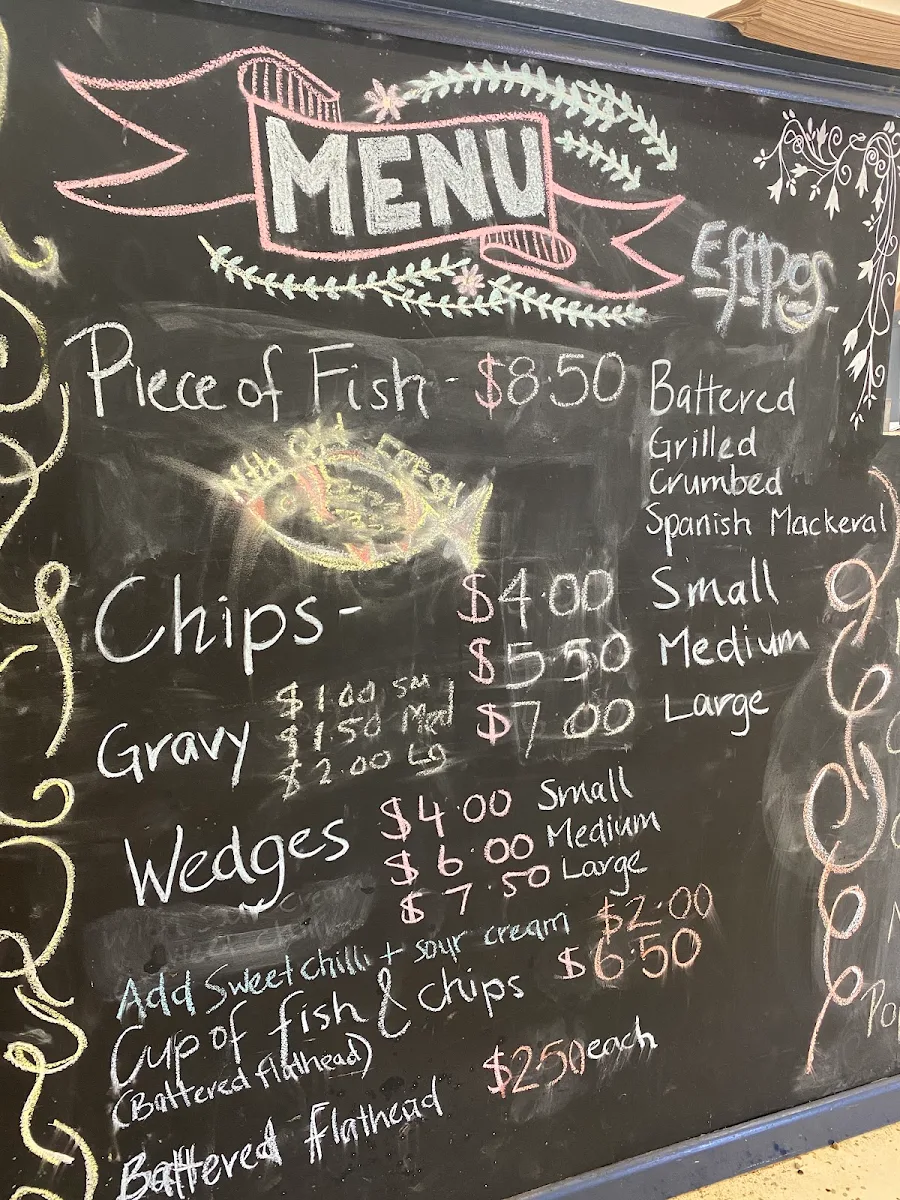 MENU
Eftpos
Piece of Fish - $8.50 Battered
Grilled
Crumbed
Spanish Mackeral
Chips - $4.00 Small
$5.50 Medium
$7.00 Large
Gravy $1.00 sm
$1.50 Med
$2.00 Lg
Wedges $4.00 Small
$6.00 Medium
$7.50 Large
Add Sweet chilli + sour cream $2.00
Cup of fish & chips $6.50
(Battered flathead)
Battered flathead $2.50 each